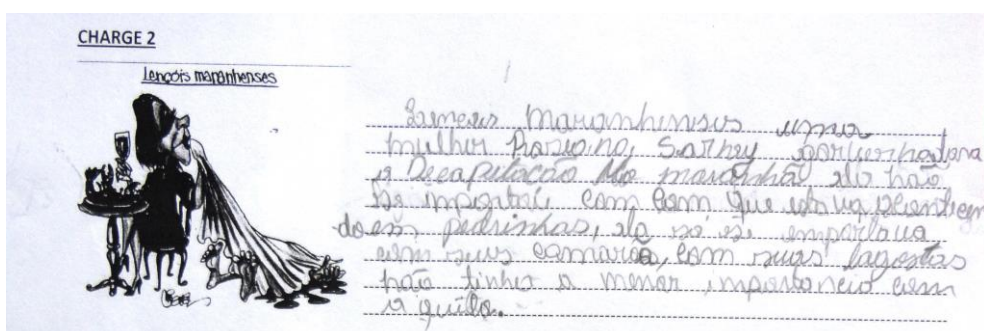 CHARGE 2
Lençóis maranhenses
maranhenses uma
mulher Sarney
a Decapitação no maranhão ela não
se importou com com que estava acontecen
do em pedrinhas, ela só se importava
com suas camarão, com suas lagostas
não tinha a menor importancia com
aquilo.